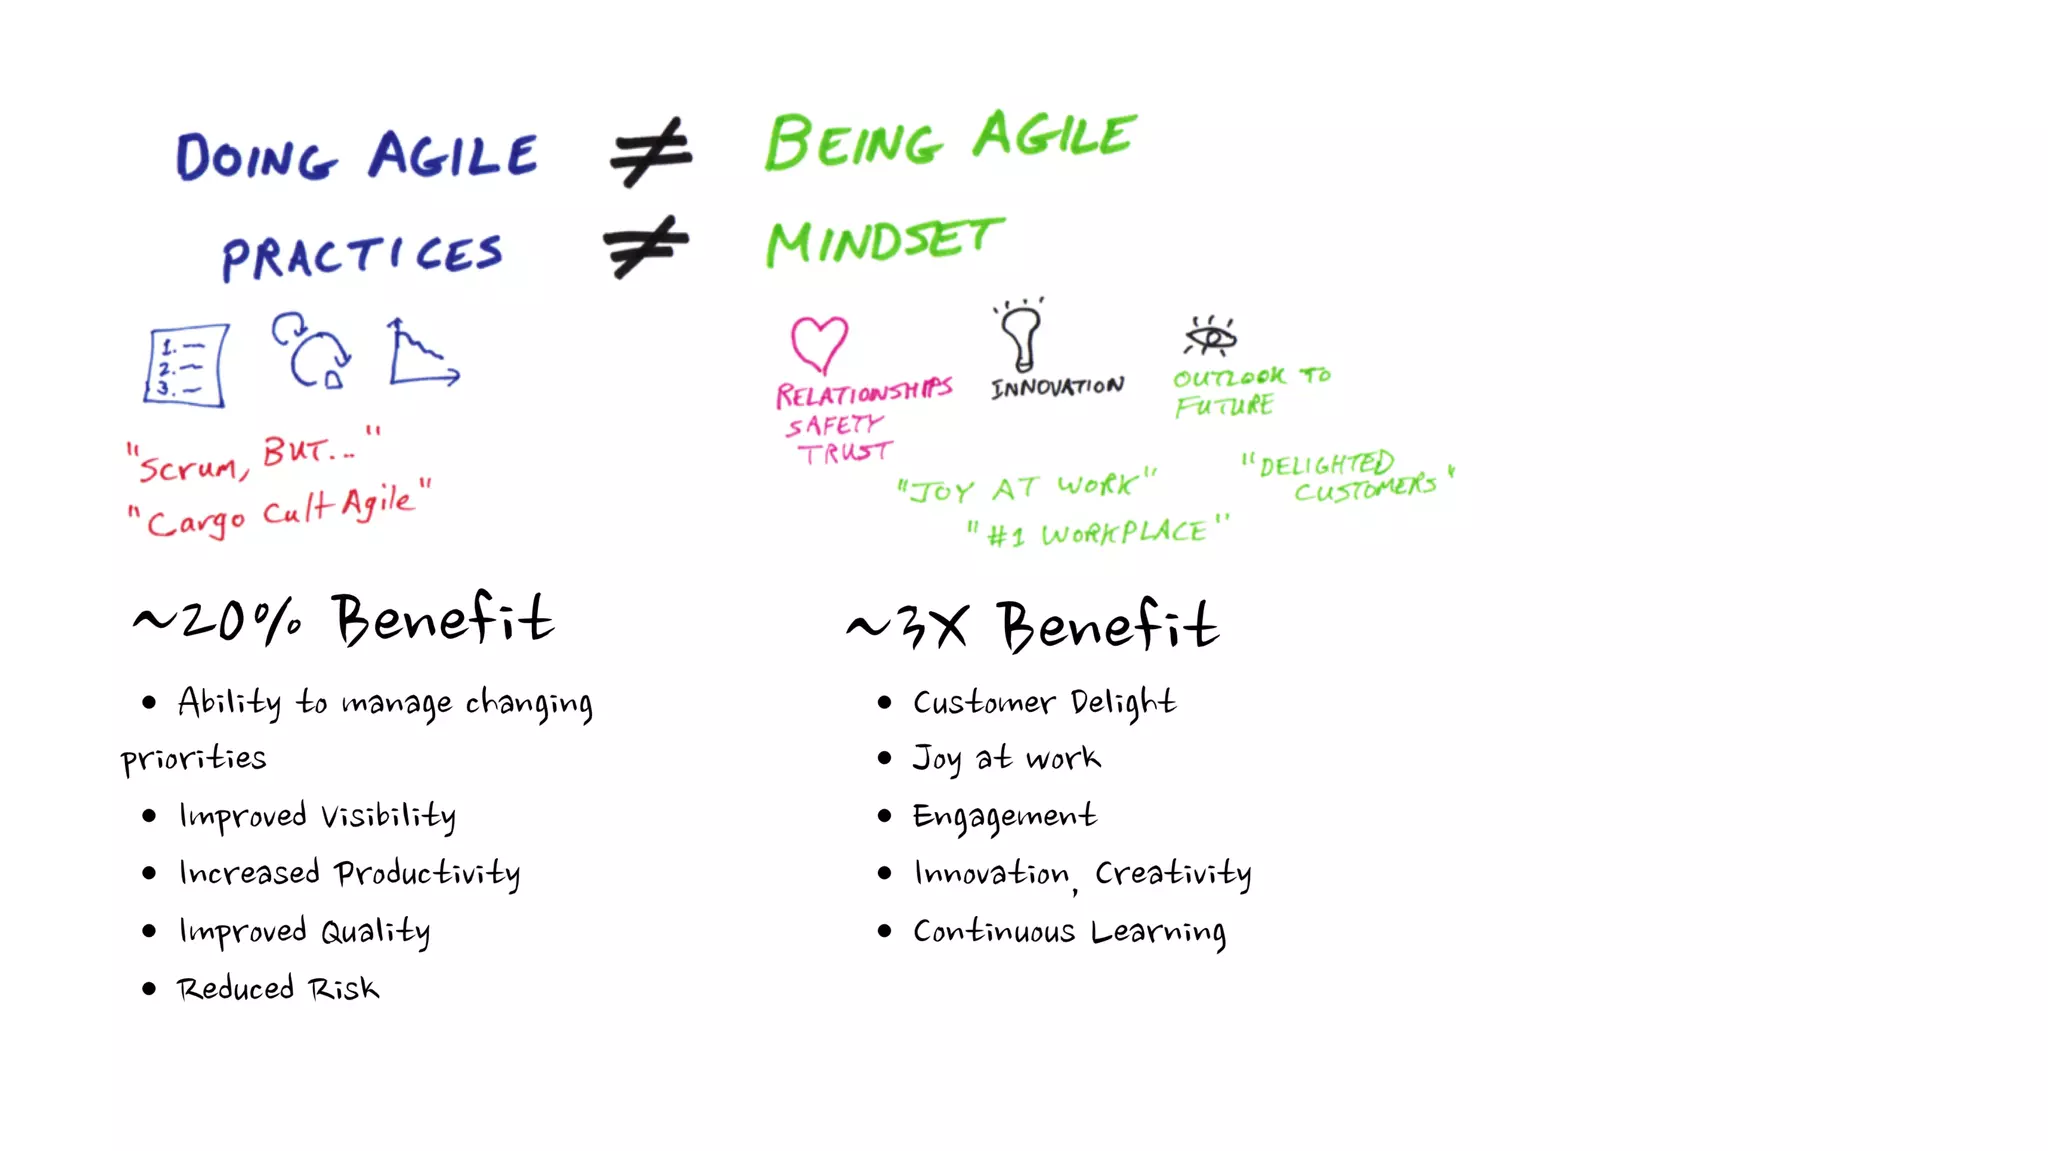 DOING AGILE ≠ BEING AGILE
PRACTICES ≠ MINDSET
1.
2.
3.
"SCRUM, BUT..."
"Cargo Cult Agile"
RELATIONSHIPS
SAFETY
TRUST
INNOVATION
OUTLOOK TO
FUTURE
"JOY AT WORK"
"#1 WORKPLACE"
"DELIGHTED
CUSTOMERS"
~20% Benefit
• Ability to manage changing
priorities
• Improved Visibility
• Increased Productivity
• Improved Quality
• Reduced Risk
~3X Benefit
• Customer Delight
• Joy at work
• Engagement
• Innovation, Creativity
• Continuous Learning